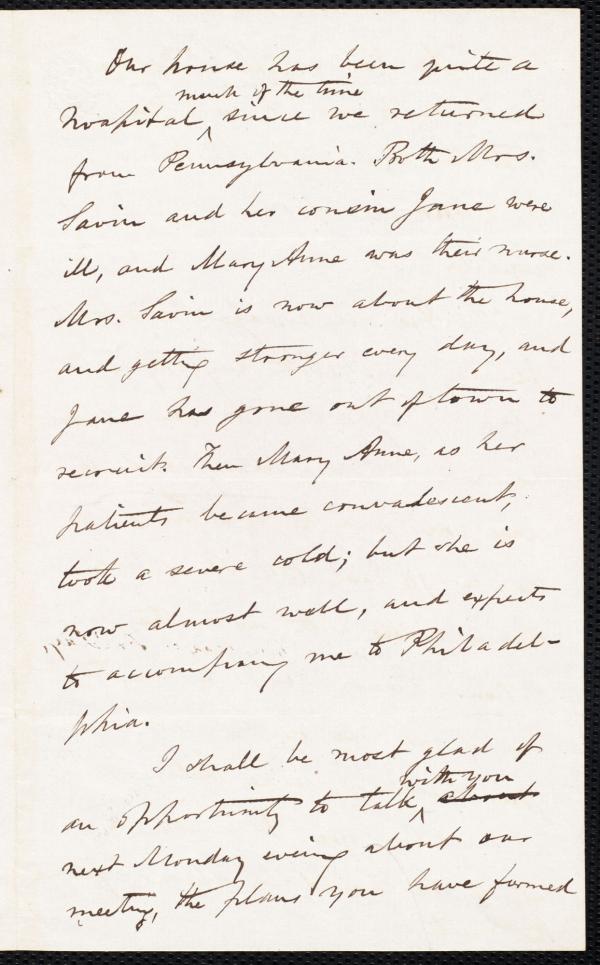 Our house has been quite a
much of the time
hospital ^ since we returned
from Pennsylvania. Both Mrs.
Savin and her cousin Jane were
ill, and Mary Anne was their nurse.
Mrs. Savin is now about the house,
and getting stronger every day, and
Jane has gone out of town to
recruit. Then Mary Anne, as her
patients became convalescent,
took a severe cold; but she is
now almost well, and expects
to accompany me to Philadel-
phia.
I shall be most glad of
with you
an opportunity to talk ^ about
next Monday evening about our
meeting, the plans you have formed